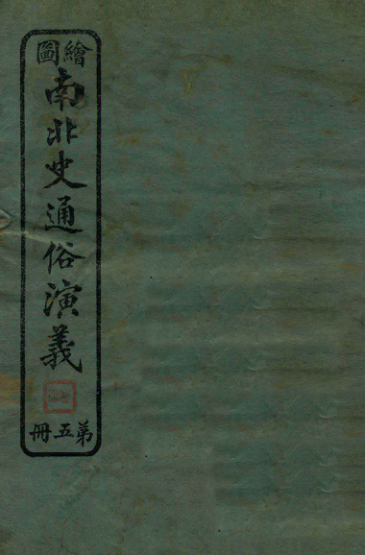 繪圖
南北史通俗演義
第五冊